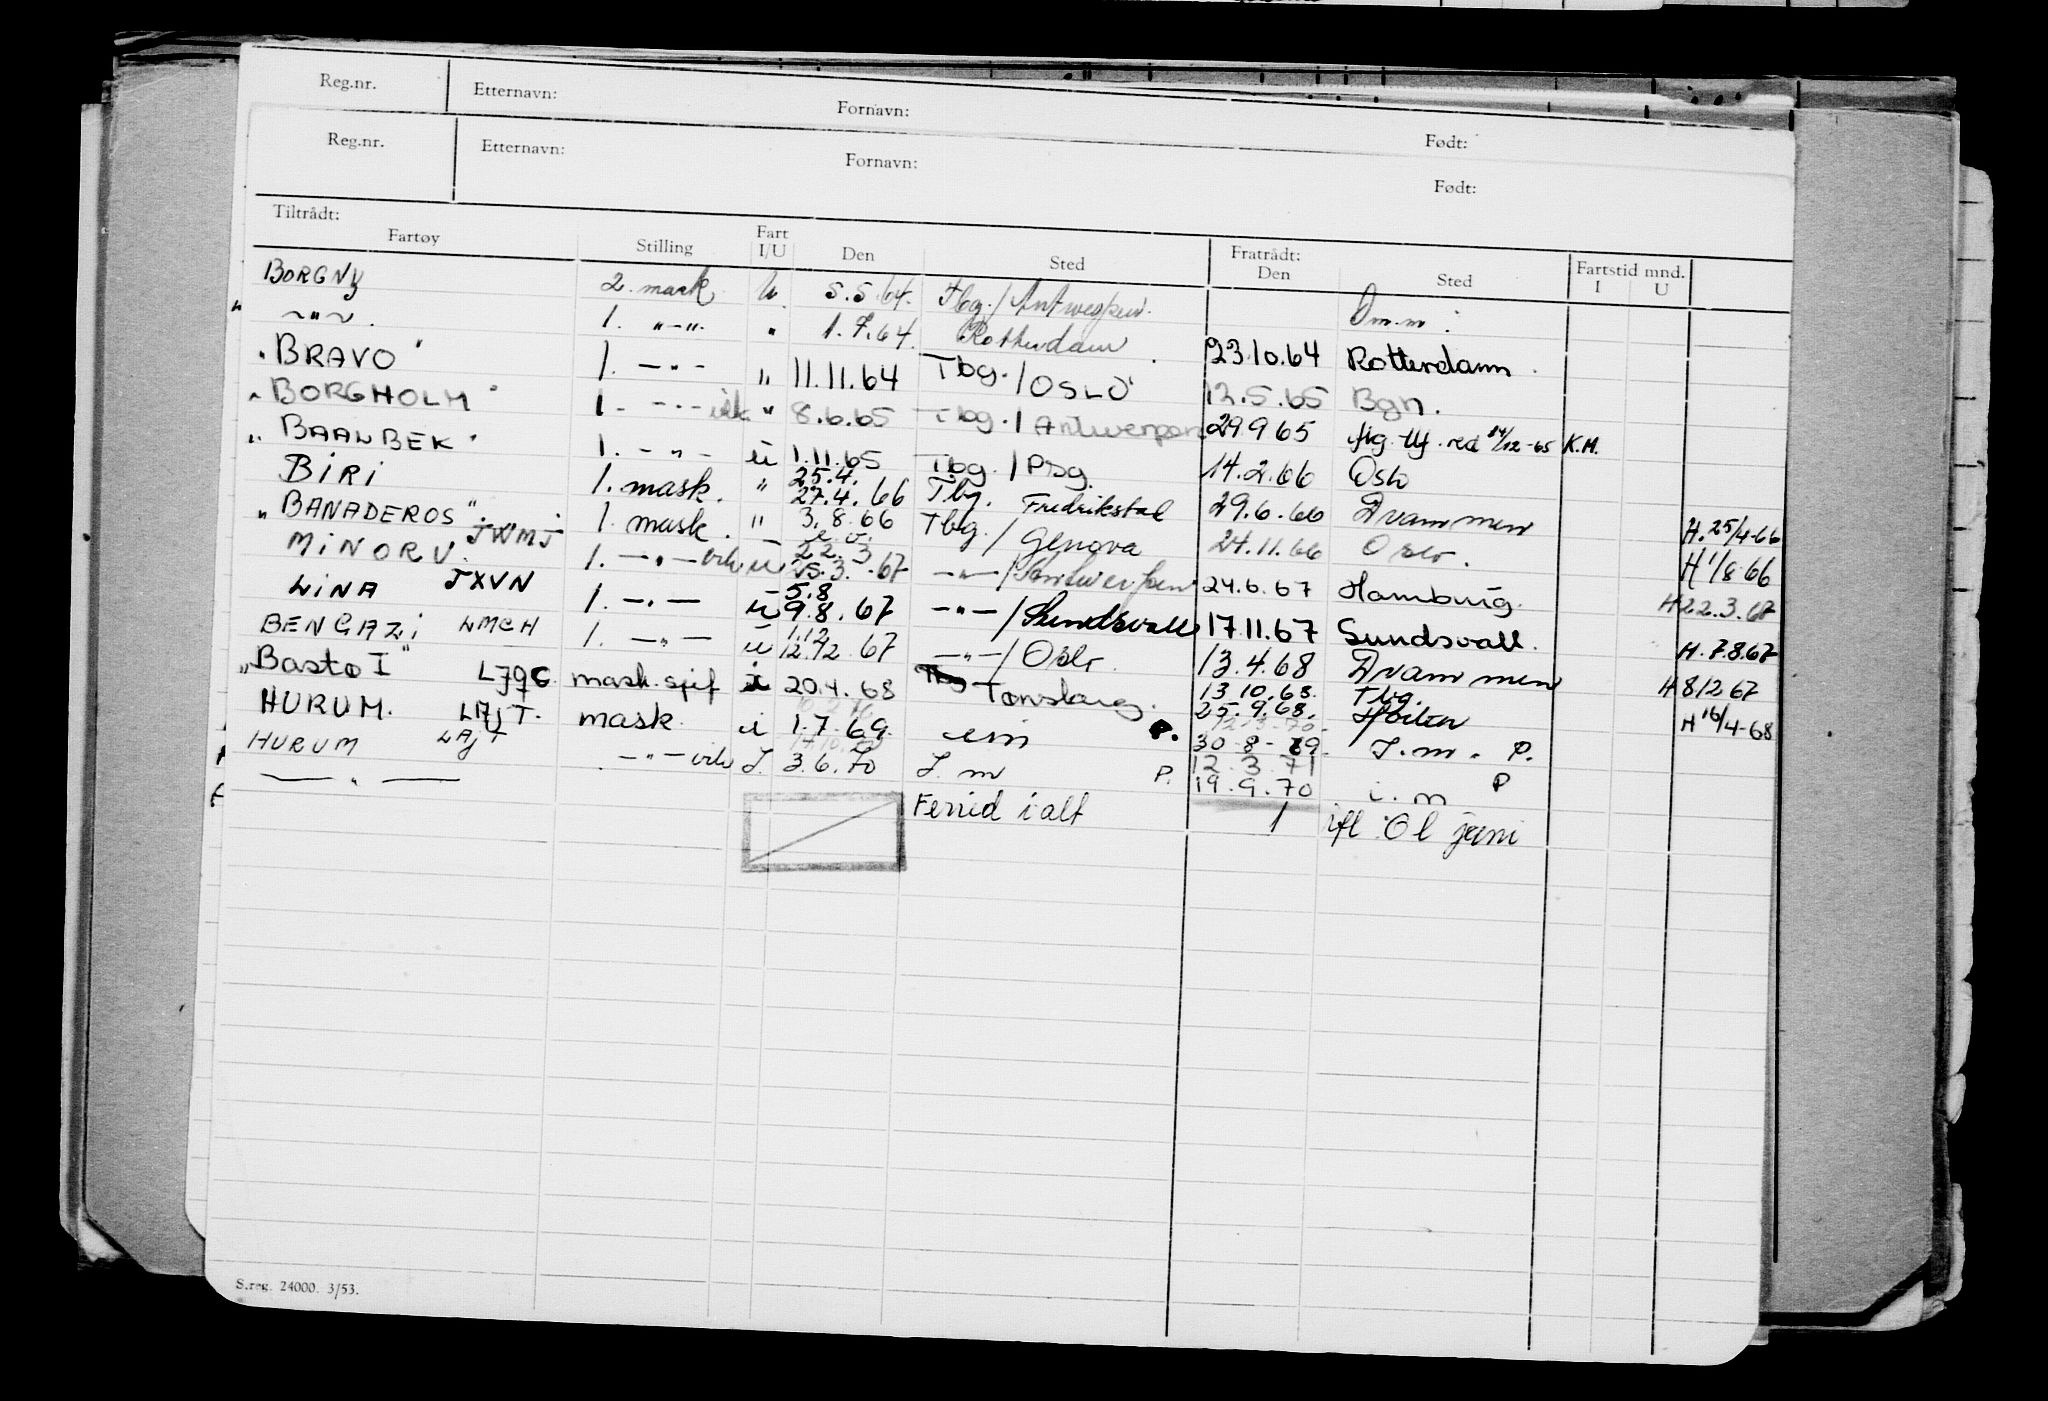 Reg.nr. Etternavn: Fornavn: Født:
Reg.nr. Etternavn: Fornavn: Født:
Tiltrådt: Fratrådt:
Fartøy Stilling Fart I/U Den Sted Den Sted Fartstid mnd. I U
BORGNY 2. mask. U. 5.5.64. Tbg./Antwerpen. Om.m.
~"~. 1. "-". " 1.7.64. Rotterdam 23.10.64 Rotterdam.
"BRAVO" 1. -"- " 11.11.64 Tbg./OSLO 12.5.65 Bgn.
"BORGHOLM" 1. -"- vik " 8.6.65 Tbg./Antwerpen 29.9.65 red 14/12-65 K.M.
"BAALBEK" 1. -"- ü 1.11.65 Tbg./Psg. 14.2.66 Oslo
BIRI 1. mask. " 25.4. 27.4.66 Tbg. Fredrikstad 29.6.66 Drammen H.25/4-66
"BANADEROS" JWMJ 1. mask. " 3.8.66 Tbg./Genova 24.11.66 Oslo. H1/8 66
MINORU. JXVN 1. -"- vik ü 22.3 25.3.67 -"-/Antwerpen 24.6.67 Hamburg. H22.3.67
LINA 1. -"- ü 5.8 9.8.67 -"-/Sundsvall 17.11.67 Sundsvall. H.7.8.67
BENGAZI LMCH 1. -"- ü 1.12 12.12.67 -"-/Oslo. 13.4.68 Drammen H812 67
"Bastø I" LJQC mask. i 20.4.68 Tønsberg. 13.10.68. Tbg. 25.9.68. H 16/4-68
HURUM. LAJT. mask. i 1.7.69. P. 30-8-69. I.m. P.
HURUM LAJT -"- vik I. 3.6.70 I.m P. 12.3.71
19.9.70 i.m P
Feried i alt 1 juni
S.reg. 24000. 3/53.